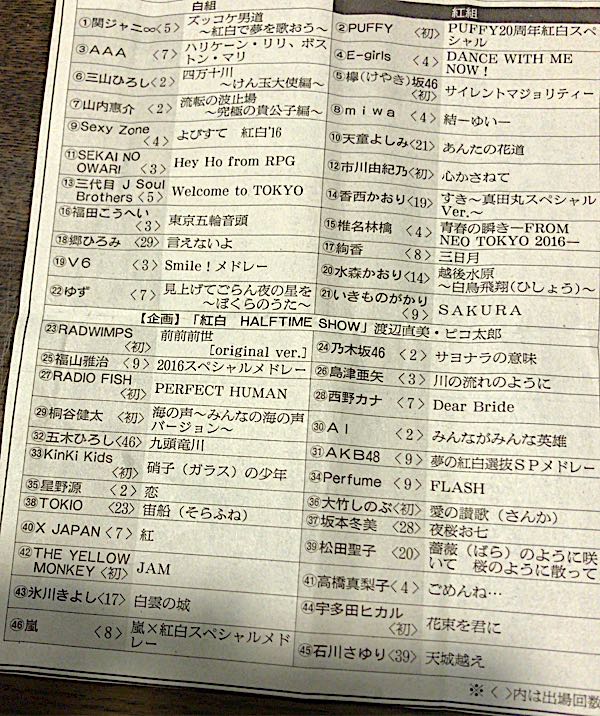 白組
①関ジャニ∞〈5〉 ズッコケ男道
～紅白で夢を歌おう～
③AAA 〈7〉 ハリケーン・リリ、ボス
トン・マリ
⑥三山ひろし〈2〉 四万十川
～けん玉大使編～
⑦山内惠介 〈2〉 流転の波止場
～究極の貴公子編～
⑨Sexy Zone
〈4〉 よびすて 紅白'16
⑪SEKAI NO
OWARI 〈3〉 Hey Ho from RPG
⑬三代目 J Soul
Brothers〈5〉 Welcome to TOKYO
⑯福田こうへい
〈3〉 東京五輪音頭
⑱郷ひろみ 〈29〉 言えないよ
⑲V6 〈3〉 Smile！メドレー
㉒ゆず 〈7〉 見上げてごらん夜の星を
～ぼくらのうた～
紅組
②PUFFY 〈初〉 PUFFY20周年紅白スペ
シャル
④E-girls 〈4〉 DANCE WITH ME
NOW！
⑤欅(けやき)坂46
〈初〉 サイレントマジョリティー
⑧miwa 〈4〉 結―ゆい―
⑩天童よしみ〈21〉 あんたの花道
⑫市川由紀乃〈初〉 心かさねて
⑭香西かおり〈19〉 すき～真田丸スペシャル
Ver.～
⑮椎名林檎 〈4〉 青春の瞬き―FROM
NEO TOKYO 2016―
⑰絢香 〈8〉 三日月
⑳水森かおり〈14〉 越後水原
～白鳥飛翔(ひしょう)～
㉑いきものがかり
〈9〉 SAKURA
【企画】「紅白 HALFTIME SHOW」渡辺直美・ピコ太郎
㉓RADWIMPS
〈初〉 前前前世
[original ver.]
㉕福山雅治 〈9〉 2016スペシャルメドレー
㉗RADIO FISH
〈初〉 PERFECT HUMAN
㉙桐谷健太 〈初〉 海の声～みんなの海の声
バージョン～
㉜五木ひろし〈46〉 九頭竜川
㉝KinKi Kids
〈初〉 硝子（ガラス）の少年
㉟星野源 〈2〉 恋
㊳TOKIO 〈23〉 宙船（そらふね）
㊵X JAPAN〈7〉 紅
㊷THE YELLOW
MONKEY〈初〉 JAM
㊸氷川きよし〈17〉 白雲の城
㊻嵐 〈8〉 嵐×紅白スペシャルメド
レー
㉔乃木坂46 〈2〉 サヨナラの意味
㉖島津亜矢 〈3〉 川の流れのように
㉘西野カナ 〈7〉 Dear Bride
㉚AI 〈2〉 みんながみんな英雄
㉛AKB48 〈9〉 夢の紅白選抜SPメドレー
㉞Perfume 〈9〉 FLASH
㊱大竹しのぶ〈初〉 愛の讃歌（さんか）
㊲坂本冬美 〈28〉 夜桜お七
㊴松田聖子 〈20〉 薔薇（ばら）のように咲
いて 桜のように散って
㊶高橋真梨子〈4〉 ごめんね…
㊹宇多田ヒカル
〈初〉 花束を君に
㊺石川さゆり〈39〉 天城越え
※〈 〉内は出場回数